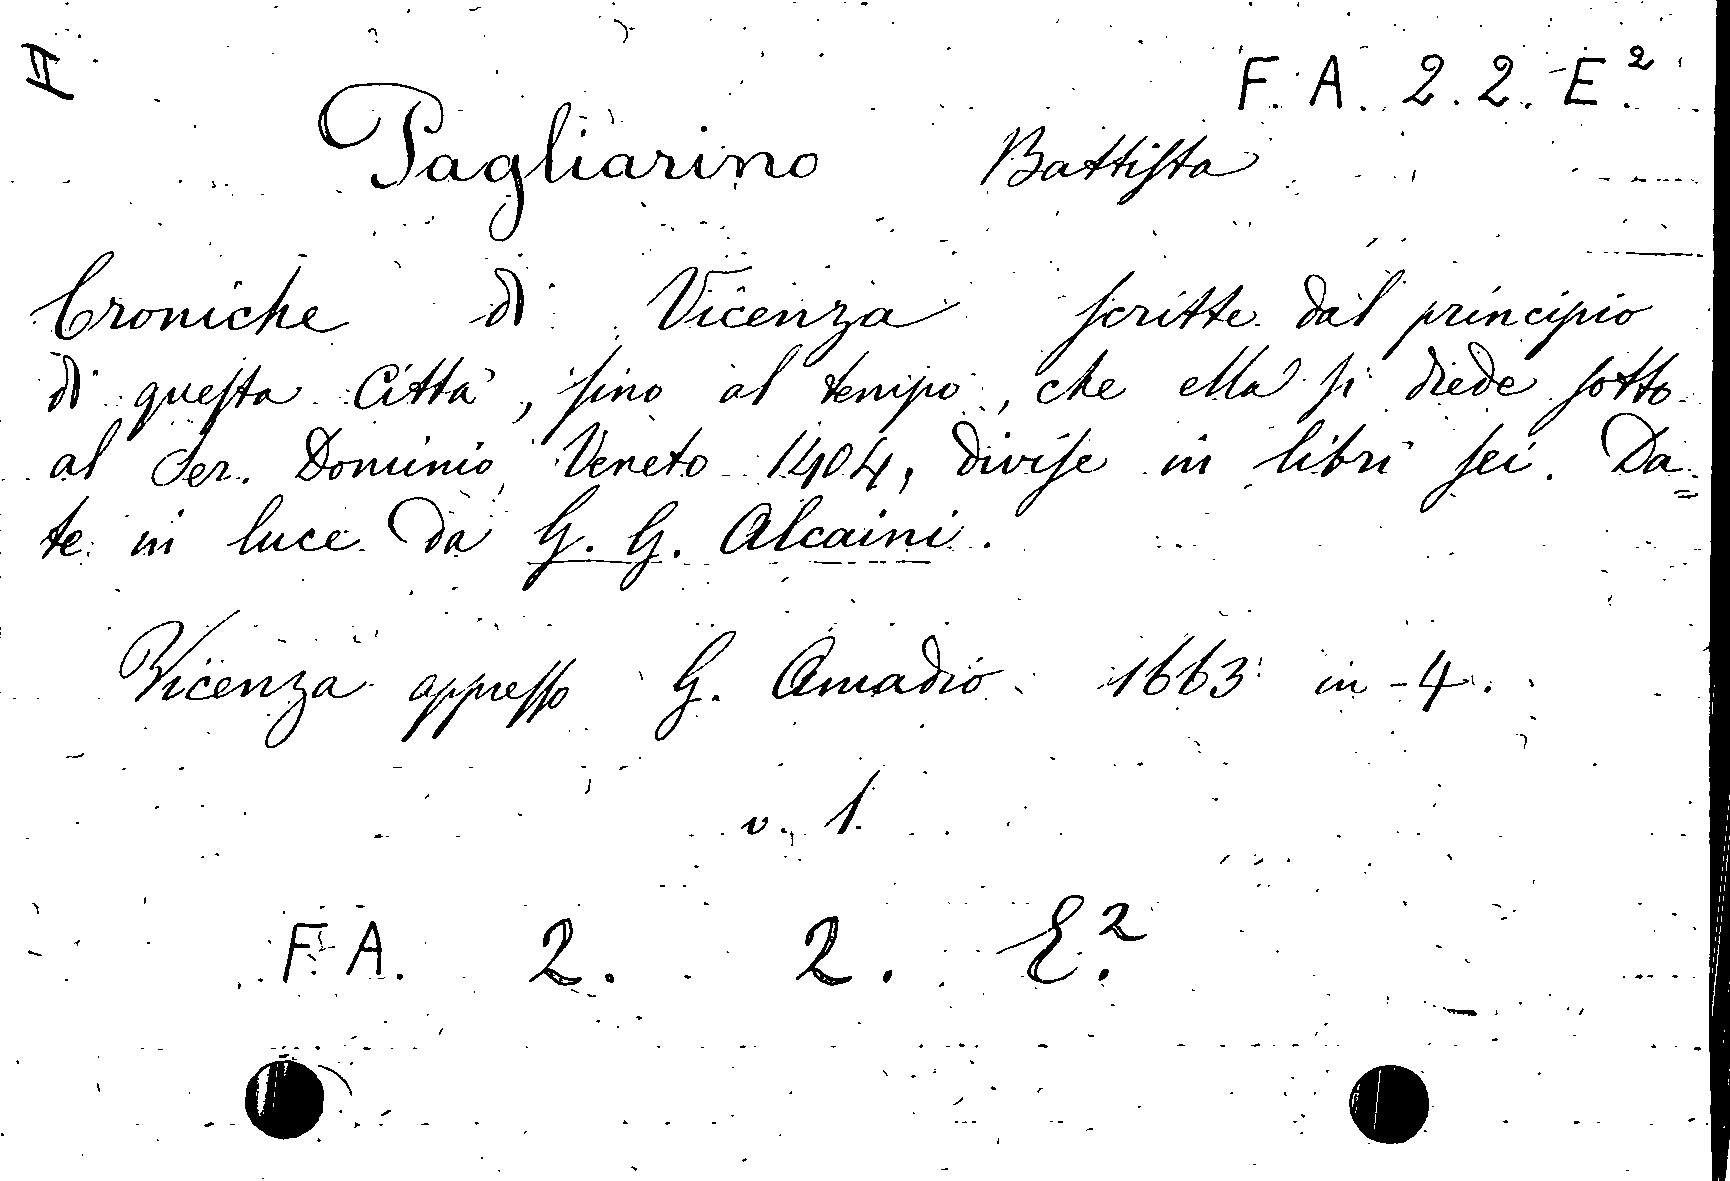 II
F. A. 2. 2. E.²
Pagliarino Battista
Croniche di Vicenza scritte dal principio
di questa Città, sino al tempo, che ella si diede sotto
al Ser. Dominio Veneto 1404, divise in libri sei. Da=
te in luce da G. G. Alcaini.
Vicenza appresso G. Amadio 1663 in-4.
v. 1.
F. A. 2. 2. E.²